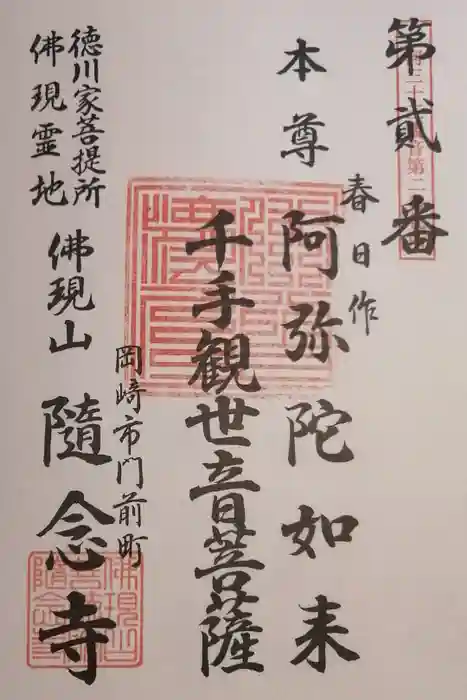 第貳番
本尊 阿弥陀如来
春日作
千手観世音菩薩
岡崎市門前町
徳川家菩提所
佛現霊地
佛現山 隨念寺